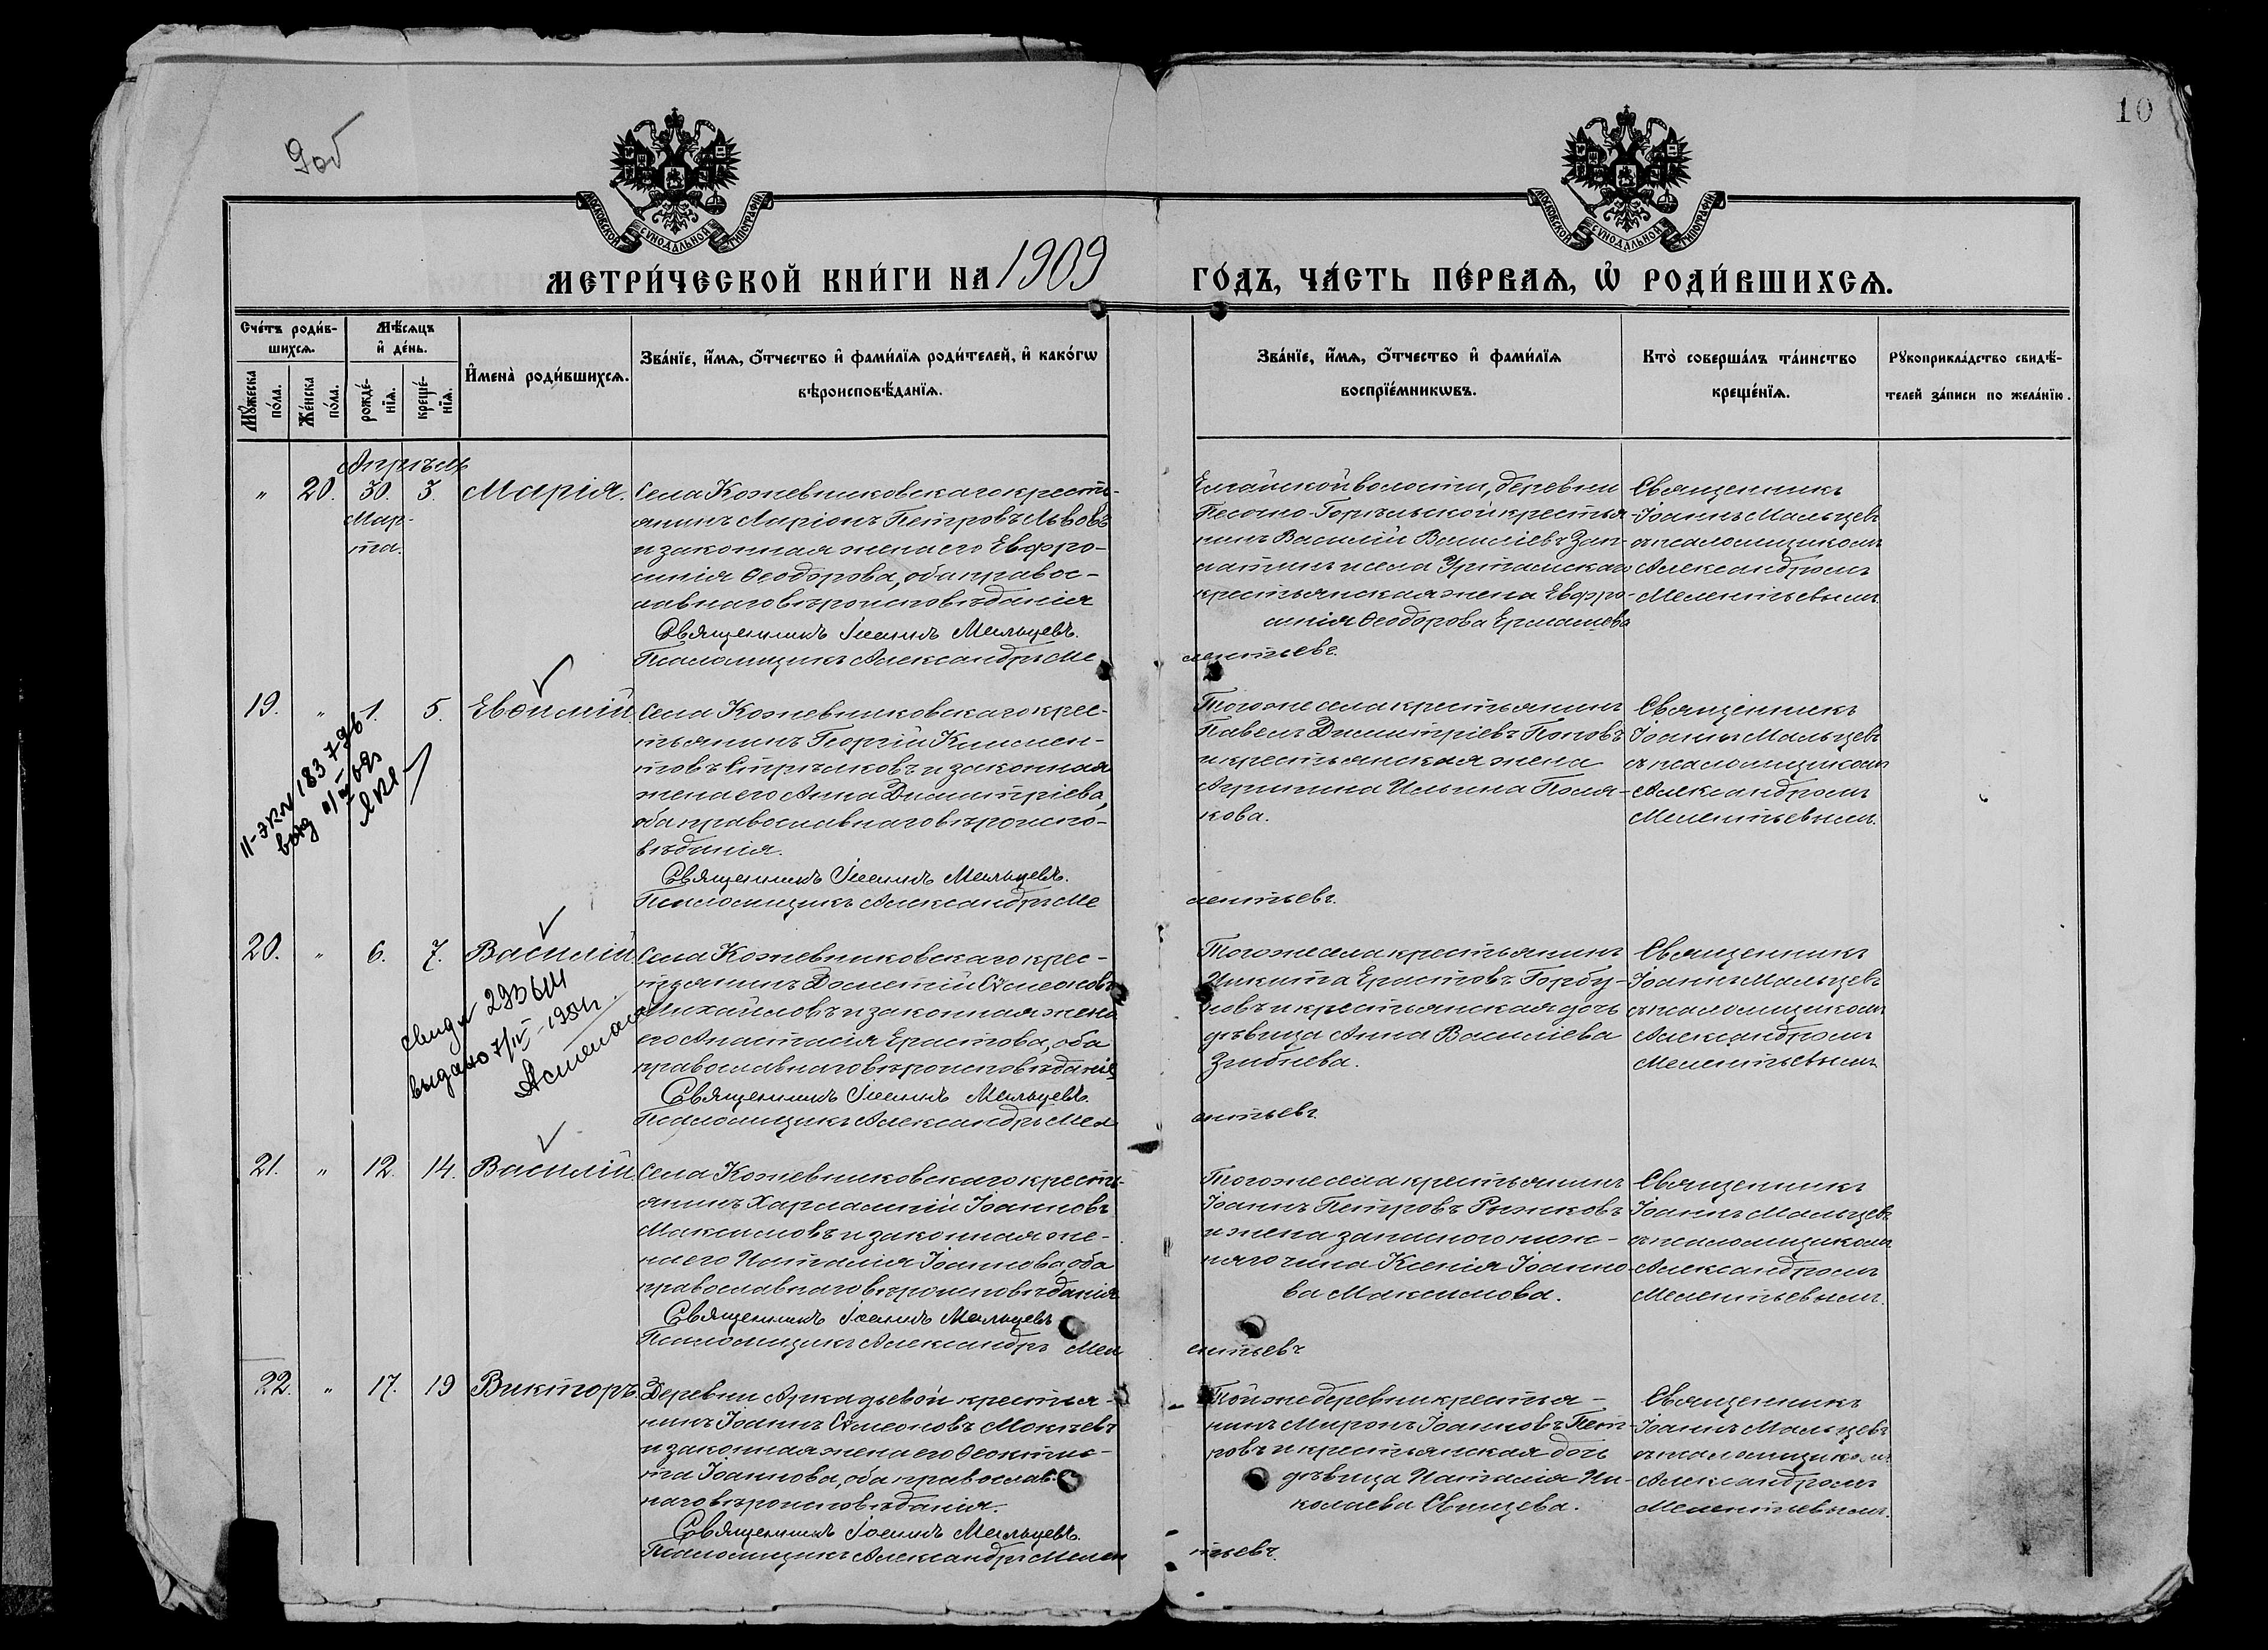 9об
10
МОСКОВСКОЙ СѴНОДАЛЬНОЙ ТИПОГРАФІИ.
МОСКОВСКОЙ СѴНОДАЛЬНОЙ ТИПОГРАФІИ.
МЕТРИ́ЧЕСКОЙ КНИ́ГИ НА 1909
ГО́ДЪ, ЧА́СТЬ ПЕ́РВАѦ, Ѽ РОДИ́ВШИХСѦ.
Сче́тъ роди́в-
шихсѧ.
Мꙋ́жеска по́ла.
Же́нска по́ла.
Мѣ́сѧцъ
и҆ де́нь.
рожде́-
нїѧ.
креще́-
нїѧ.
И҆мена̀ роди́вшихсѧ.
Зва́нїе, и҆́мѧ, ѻ҆́тчество и҆ фами́лїѧ роди́телей, и҆ како́гѡ
вѣроисповѣ́данїѧ.
Зва́нїе, и҆́мѧ, ѻ҆́тчество и҆ фами́лїѧ
воспрїе́мникѡвъ.
Кто̀ соверша́лъ та́инство
креще́нїѧ.
Рꙋкоприкла́дство свидѣ́-
телей за́писи по жела́нїю.
Апрѣль
" 20. 30. 3. Марія.
Мар-
та.
Села Кожевниковскаго кресть-
янинъ Ларіонъ Петровъ Львовъ
и законная жена его Евфро-
синія Ѳеодорова, оба правос-
лавнаго вѣроисповѣданія
Священникъ Іоаннъ Мальцевъ.
Псаломщикъ Александръ Ме
лентьевъ.
Елгайской волости, деревни
Песочно-Горѣльской крестья-
нинъ Василій Василіевъ
и села Уртамскаго
крестьянская жена Евфро-
синія Ѳеодорова Ермашева
Священникъ
Іоаннъ Мальцевъ
съ псаломщикомъ
Александромъ
Мелентьевымъ.
19. " 1. 5. Евѳимій.
II-экз № 183796
Села Кожевниковскаго крес-
тьянинъ Георгій Климен-
товъ Стрѣлковъ и законная
жена его Анна Димитріева,
оба православнаго вѣроиспо-
вѣданія.
Священникъ Іоаннъ Мальцевъ.
Псаломщикъ Александръ Ме
лентьевъ.
Того же села крестьянинъ
Павелъ Димитріевъ Поповъ
и крестьянская жена
Агрипина Ильина Поля-
кова.
Священникъ
Іоаннъ Мальцевъ
съ псаломщикомъ
Александромъ
Мелентьевымъ.
20. " 6. 7. Василій.
выдано 7/IV-1951г.
Села Кожевниковскаго крес-
тьянинъ Дометій Сѵмеоновъ
Михайловъ и законная жена
его Анастасія Ерастова, оба
православнаго вѣроисповѣданія
Священникъ Іоаннъ Мальцевъ.
Псаломщикъ Александръ Мел
ентьевъ.
Того же села крестьянинъ
Никита Ерастовъ Горбу-
новъ и крестьянская дочь
дѣвица Анна Василіева
Згибнева.
Священникъ
Іоаннъ Мальцевъ
съ псаломщикомъ
Александромъ
Мелентьевымъ
21. " 12. 14. Василій.
Села Кожевниковскаго кресть-
янинъ Харлампій Іоанновъ
Максимовъ и законная же-
на его Наталія Іоаннова, оба
православнаго вѣроисповѣданія
Священникъ Іоаннъ Мальцевъ
Псаломщикъ Александръ Мел
ентьевъ
Того же села крестьянинъ
Іоаннъ Петровъ Рыжковъ
и жена запаснаго ниж-
няго чина Ксенія Іоанно-
ва Максимова.
Священникъ
Іоаннъ Мальцевъ
съ псаломщикомъ
Александромъ
Мелентьевымъ.
22. " 17. 19 Викторъ.
Деревни Аркадьевой крестья-
нинъ Іоаннъ Сѵмеоновъ Мокѣевъ
и законная жена его Ѳеоктис-
та Іоаннова, оба православ-
наго вѣроисповѣданія.
Священникъ Іоаннъ Мальцевъ.
Псаломщикъ Александръ Мелен
тьевъ.
Той же деревни крестья-
нинъ Миронъ Іоанновъ Пет-
ровъ и крестьянская дочь
дѣвица Наталія Ни-
колаева Свищева.
Священникъ
Іоаннъ Мальцевъ
съ псаломщикомъ
Александромъ
Мелентьевымъ.